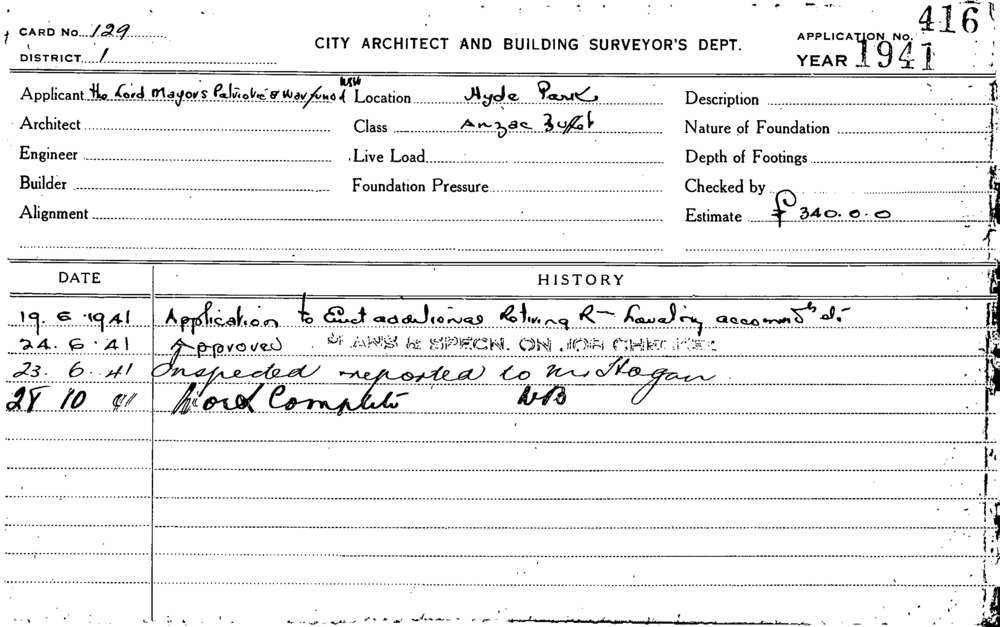 CARD No. 129
DISTRICT 1
CITY ARCHITECT AND BUILDING SURVEYOR'S DEPT.
APPLICATION No. 416
YEAR 1941
Applicant The Lord Mayors Patriotic & War fund NSW Location Hyde Park Description
Architect Class Anzac Buffet Nature of Foundation
Engineer Live Load Depth of Footings
Builder Foundation Pressure Checked by
Alignment Estimate £ 340.0.0
DATE HISTORY
19. 6. 1941 Application to Erect additional Retiring Rm Lavatry accommdt etc
24. 6. 41 Approved PLANS & SPECN. ON JOB CHECKED
23. 6. 41 Inspected reported to Mr Hogan
28 10 41 Work Complete